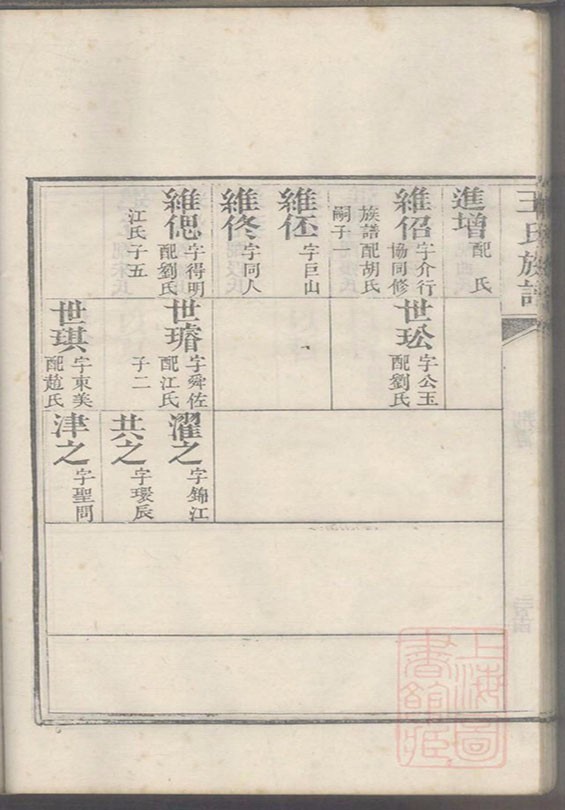 王氏族譜
進增 配 氏
維侶 字介行
協同修
族譜配胡氏
嗣子一
維伾 字巨山
維佟 字同人
維偲 字得明
配劉氏
江氏子五
世玜 字公玉
配劉氏
世璿 字舜佐
配江氏
子二
世琪 字東美
配趙氏
濯之 字錦江
共之 字環辰
津之 字聖問
上海圖
書館藏